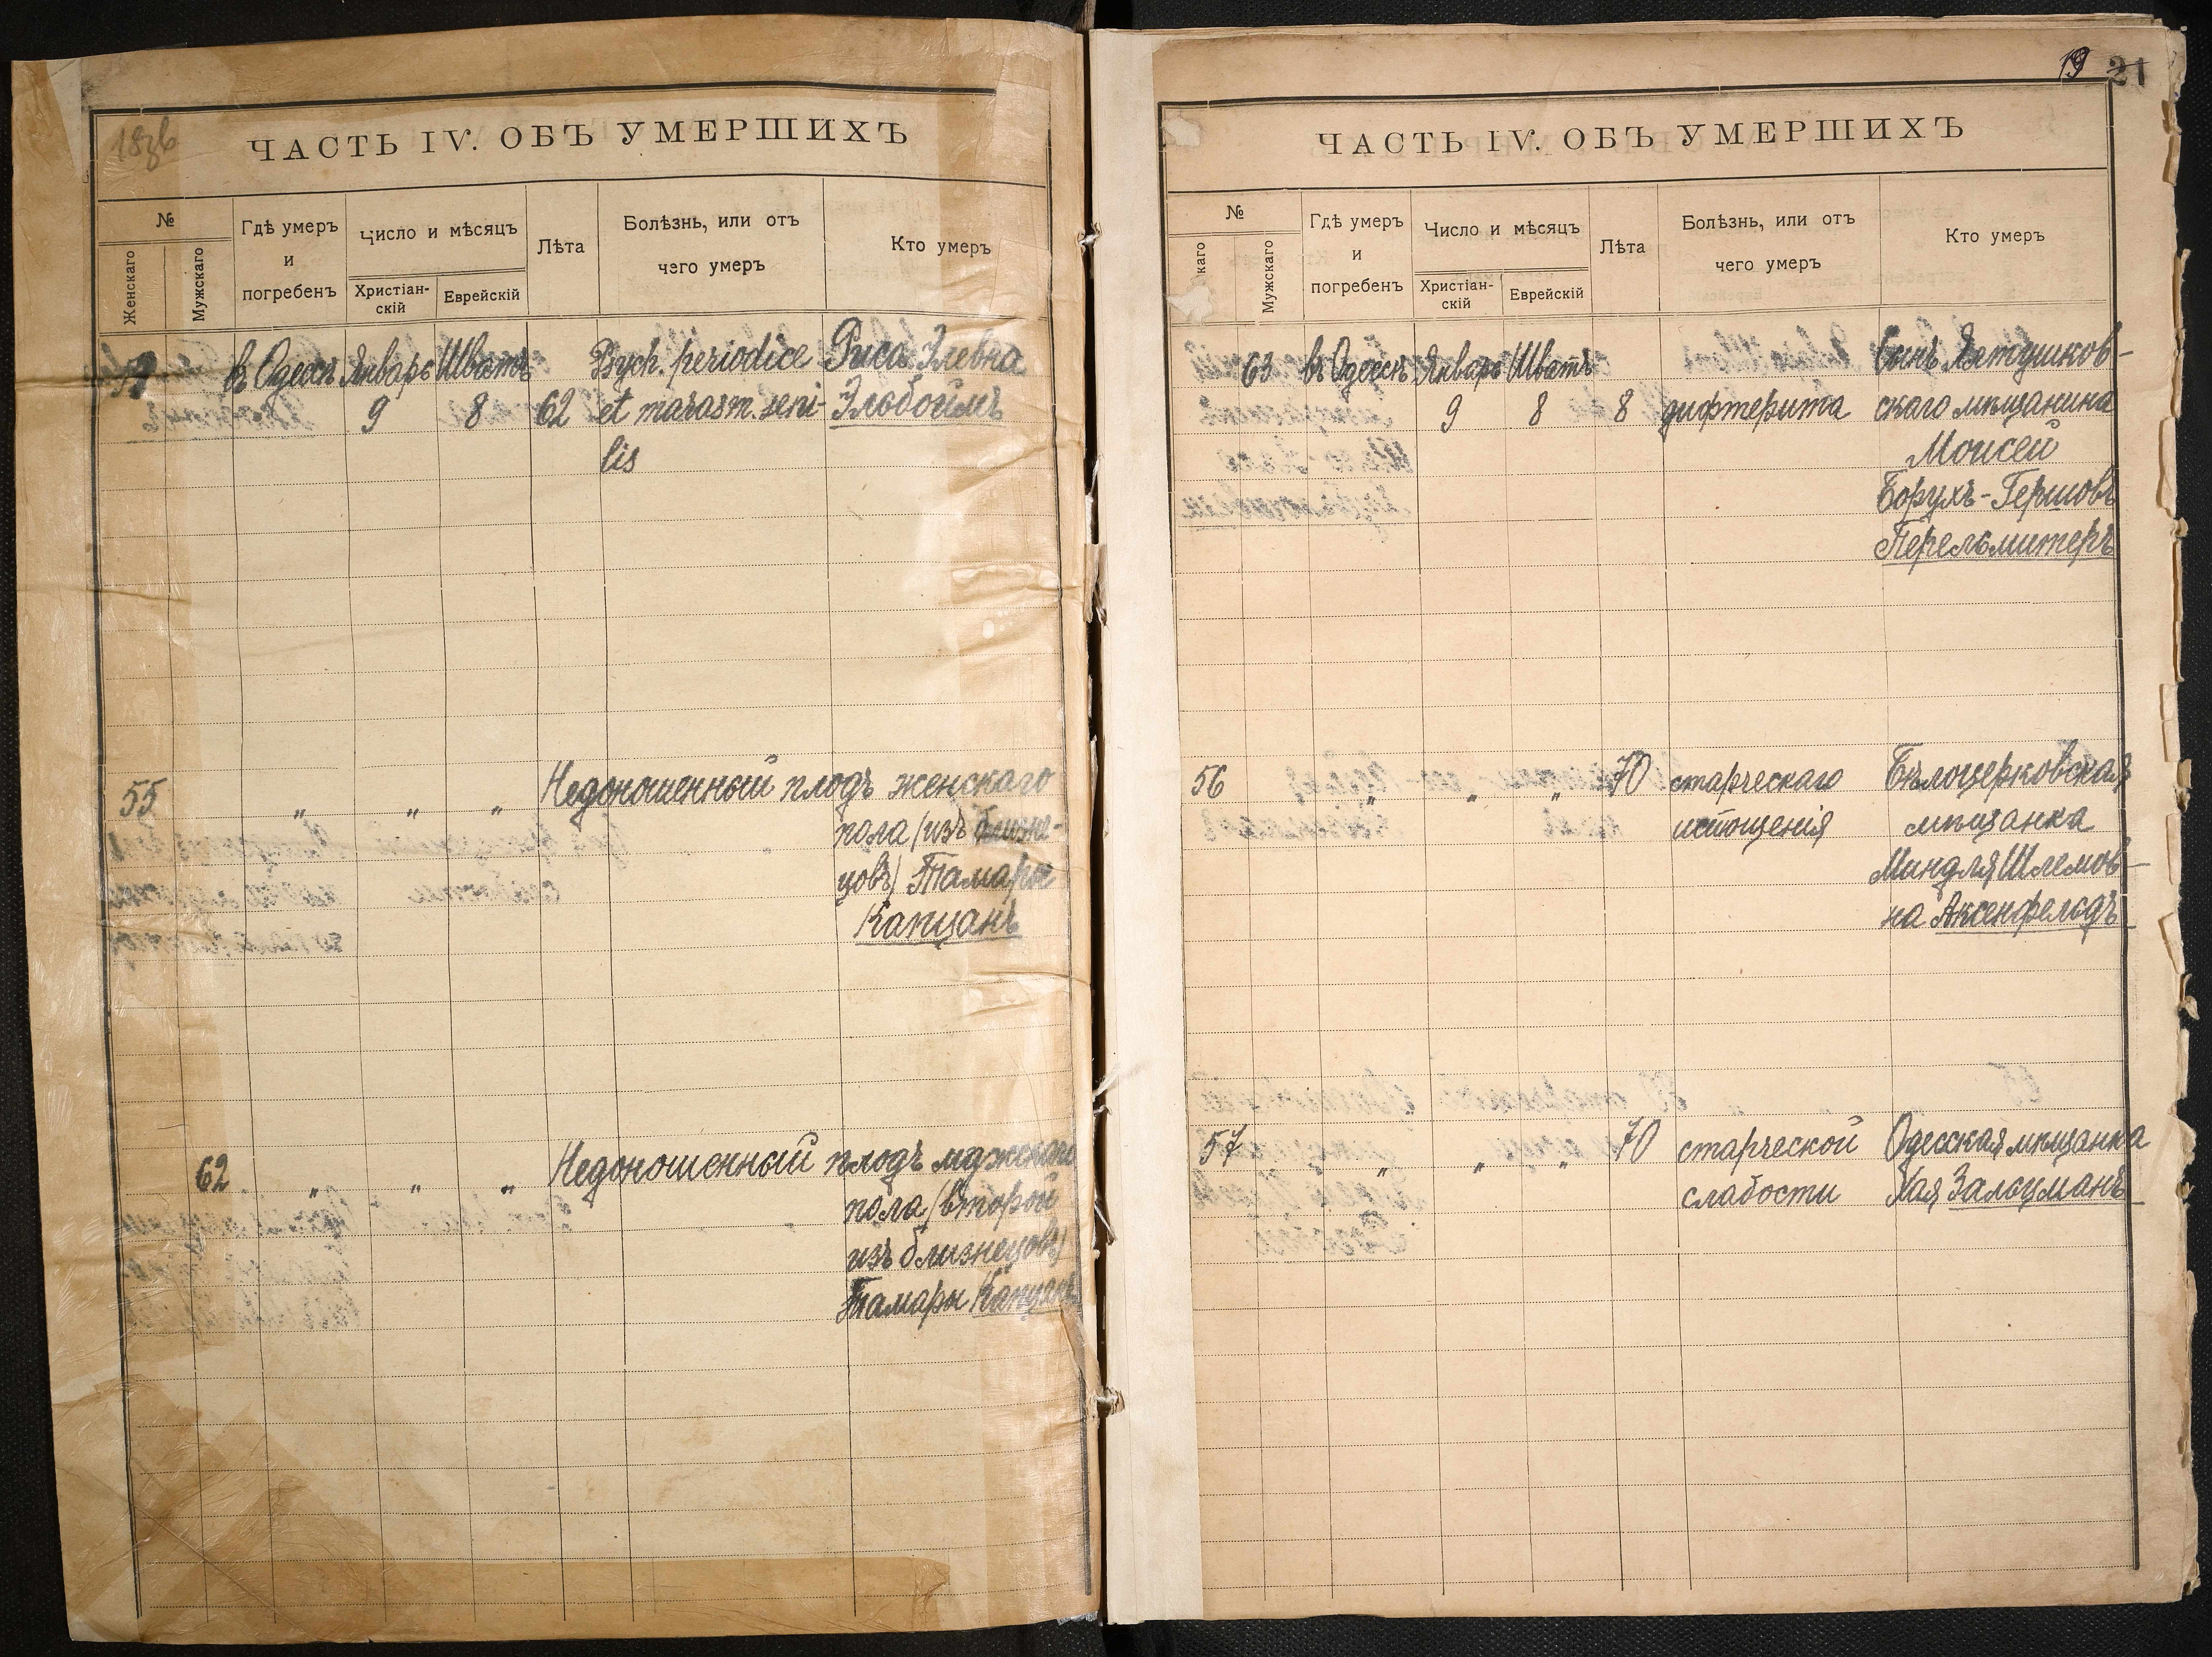 18зв
ЧАСТЬ IV. ОБЪ УМЕРШИХЪ
№
Женскаго
Мужскаго
Гдѣ умеръ
и
погребенъ
Число и мѣсяцъ
Христіан-
скій
Еврейскій
Лѣта
Болѣзнь, или отъ
чего умеръ
Кто умеръ
въ Одессѣ Январь Шватъ Psych. periodice Рися Элевна
9 8 62 et marasm. seni- Эльбоймъ
lis
55 " " " Недоношенный плодъ женскаго
пола (изъ близне-
цовъ) Тамары
Капцанъ
62 " " " Недоношенный плодъ мужскаго
пола (второй
изъ близнецовъ)
Тамары Капцанъ
19 21
ЧАСТЬ IV. ОБЪ УМЕРШИХЪ
№
каго
Мужскаго
Гдѣ умеръ
и
погребенъ
Число и мѣсяцъ
Христіан-
скій
Еврейскій
Лѣта
Болѣзнь, или отъ
чего умеръ
Кто умеръ
63 въ Одессѣ Январь Шватъ Сынъ Ялтушков-
9 8 8 дифтерита скаго мѣщанина
Моисей
Борухъ-Гершовъ
Перельмитеръ
56 " " " 70 старческаго Бѣлоцерковская
истощенія мѣщанка
Миндля Шлемов-
на Аксенфельдъ
57 " " " 70 старческой Одесская мѣщанка
слабости Хая Зальцманъ